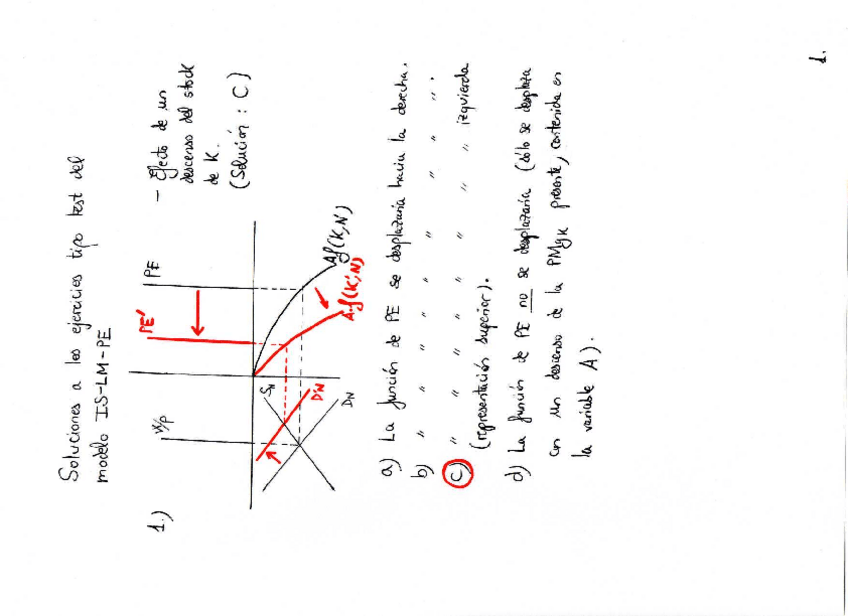 Soluciones a los ejercicios tipo test del
modelo IS-LM-PE
1.)
W/P
PE'
PE
SN
D'N
DN
Af(K,N)
A.f(K',N)
- Efecto de un
descenso del stock
de K.
(Solución : C)
a) La función de PE se desplazaría hacia la derecha.
b) " " " " " " " ".
c) " " " " " " " izquierda
(representación superior).
d) La función de PE no se desplazaría (sólo se desplaza
con un descenso de la PMgK presente, contenida en
la variable A).
1.